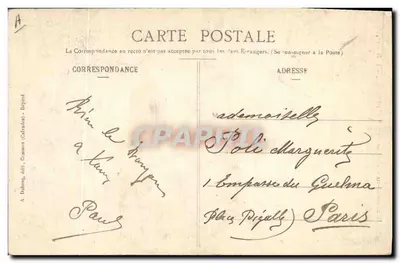 A
CARTE POSTALE
La Correspondance au recto n'est pas acceptée par tous les pays Etrangers. (Se renseigner à la Poste)
CORRESPONDANCE
ADRESSE
Bien le
a
Paul
ademoiselle
Poli Marguerite
1 Empasse du Guelma
Place Pigalle) Paris
CPARAMA